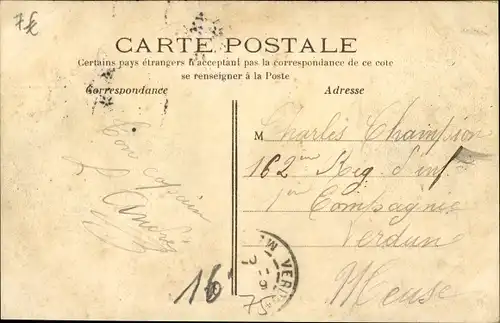 7€
CARTE POSTALE
Certains pays étrangers n'acceptant pas la correspondance de ce cote
se renseigner à la Poste
Correspondance
Adresse
Ton cousin
M Charles Champion
162me Reg. d'inf
1ère Compagnie
Verdun
Meuse
VERDUN
16
75